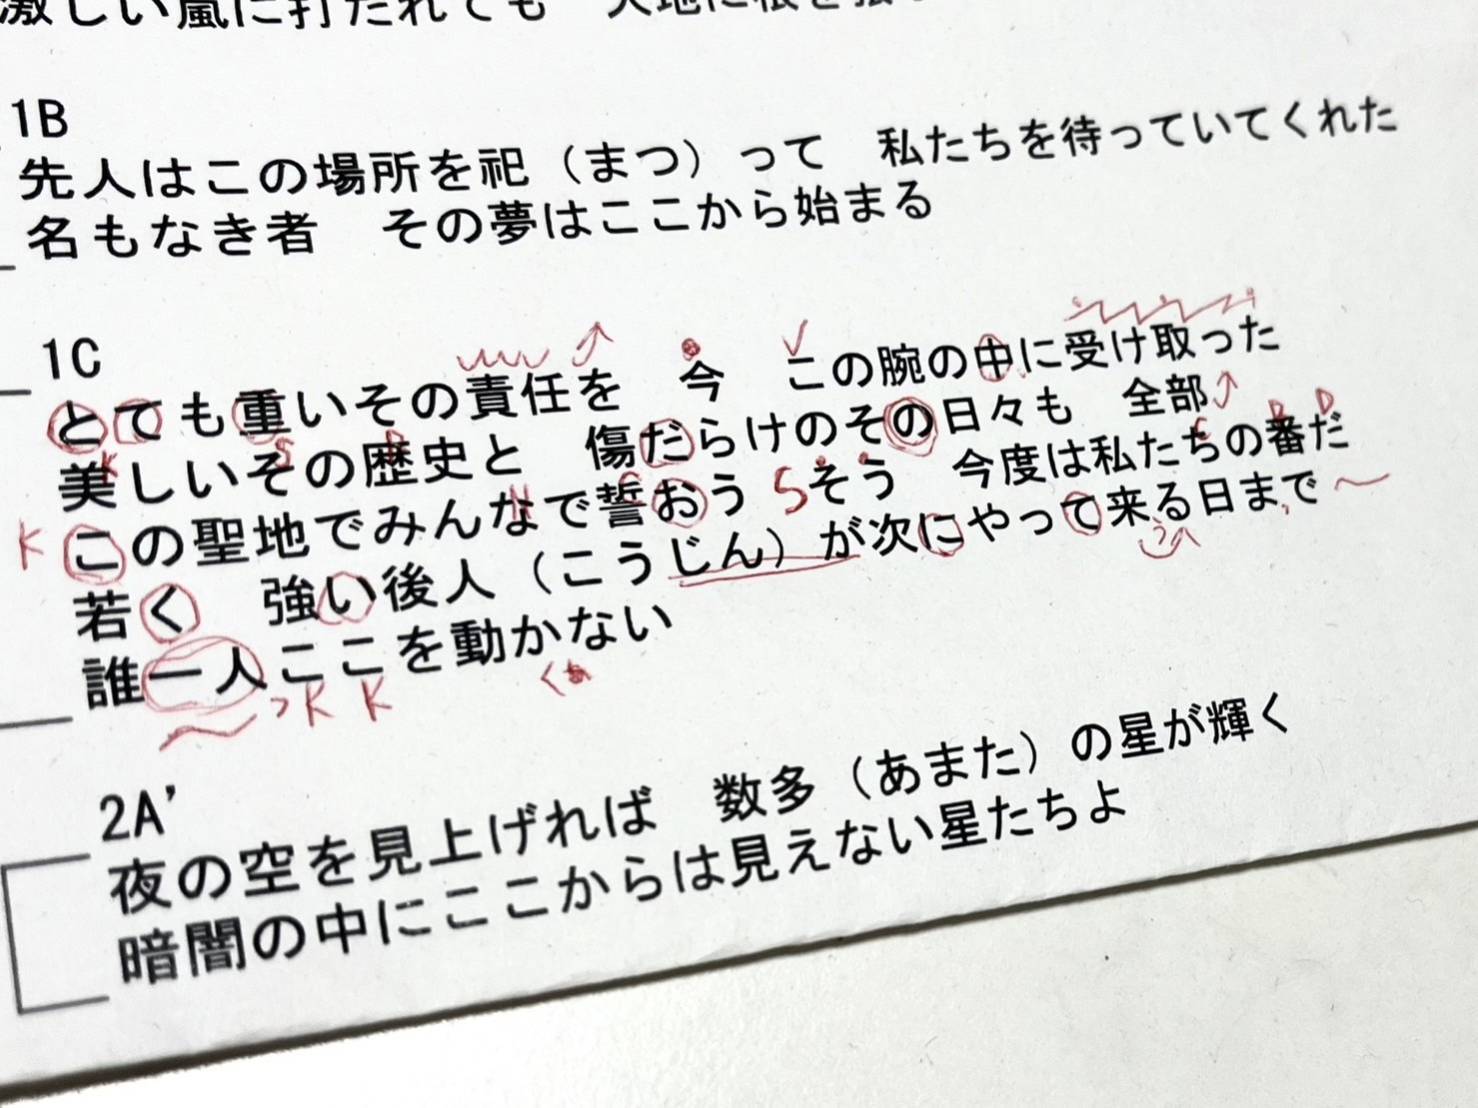 激しい嵐に打たれても　大地に根を張
1B
先人はこの場所を祀（まつ）って　私たちを待っていてくれた
名もなき者　その夢はここから始まる
1C
とても重いその責任を　今　この腕の中に受け取った
美しいその歴史と　傷だらけのその日々も　全部
K S D C B D
この聖地でみんなで誓おう　そう　今度は私たちの番だ
K N C S
若く　強い後人（こうじん）が次にやって来る日まで
誰一人ここを動かない
っK K くぁ
2A'
夜の空を見上げれば　数多（あまた）の星が輝く
暗闇の中にここからは見えない星たちよ